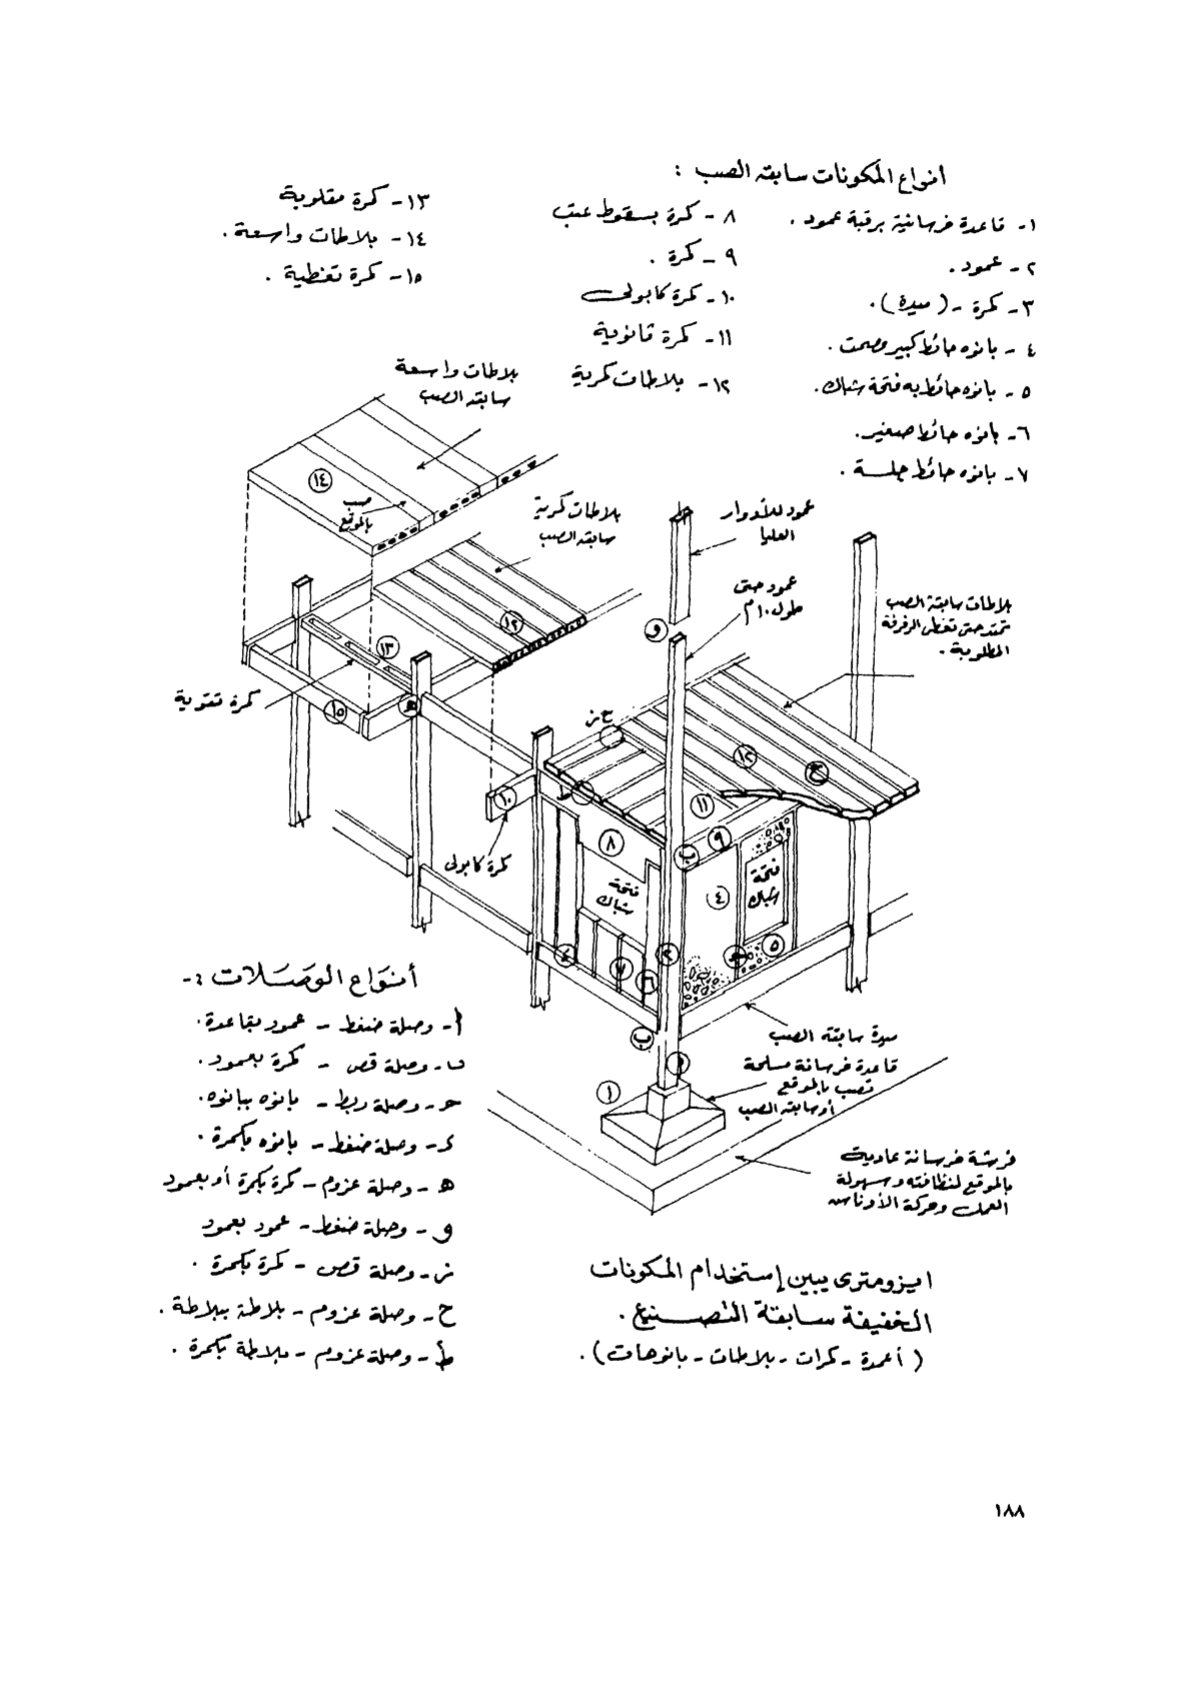 أنواع المكونات سابقة الصب :
١- قاعدة خرسانية برقبة عمود .
٢- عمود .
٣- كمرة - ( ميدة ) .
٤- بانوه حائط كبير مصمت .
٥- بانوه حائط به فتحة شباك .
٦- بانوه حائط صغير .
٧- بانوه حائط جلسة .
٨- كمرة بسقوط عتب
٩- كمرة .
١٠- كمرة كابولى
١١- كمرة ثانوية
١٢- بلاطات كمرية
١٣- كمرة مقلوبة
١٤- بلاطات واسعة .
١٥- كمرة تغطية .
بلاطات واسعة
سابقه الصب
١٤
صب
بالموقع
بلاطات كمرية
سابقه الصب
١٢
١٣
كمرة تقوية
١٥
ه
عمود للأدوار
العليا
عمود حتى
طول ١٠م
و
بلاطات سابقة الصب
تمتد حتى تغطى الرفرفة
المطلوبة .
ح
١٢
ط
١١
٩
ب
٨
١٠
كمرة كابولى
فتحة
شباك
فتحة
شباك
٤
٤
٥
٢
٧
٦
ب
١
ميدة سابقة الصب
قاعدة خرسانة مسلحة
تصب بالموقع
أو سابقة الصب
فرشة خرسانة عادية
بالموقع لنظافته وسهولة
العمل وحركة الأوناش
أنواع الوصلات :-
أ- وصلة ضغط - عمود بقاعدة .
ب- وصلة قص - كمرة بعمود .
حـ- وصلة ربط - بانوه ببانوه .
د- وصلة ضغط - بانوه بكمرة .
هـ- وصلة عزوم - كمرة بكمرة أو بعمود
و- وصلة ضغط - عمود بعمود
ز- وصلة قص - كمرة بكمرة .
ح- وصلة عزوم - بلاطة ببلاطة .
ط- وصلة عزوم - بلاطة بكمرة .
ايزومترى يبين إستخدام المكونات
الخفيفة سابقة التصنيع .
( أعمدة - كمرات - بلاطات - بانوهات ) .
١٨٨